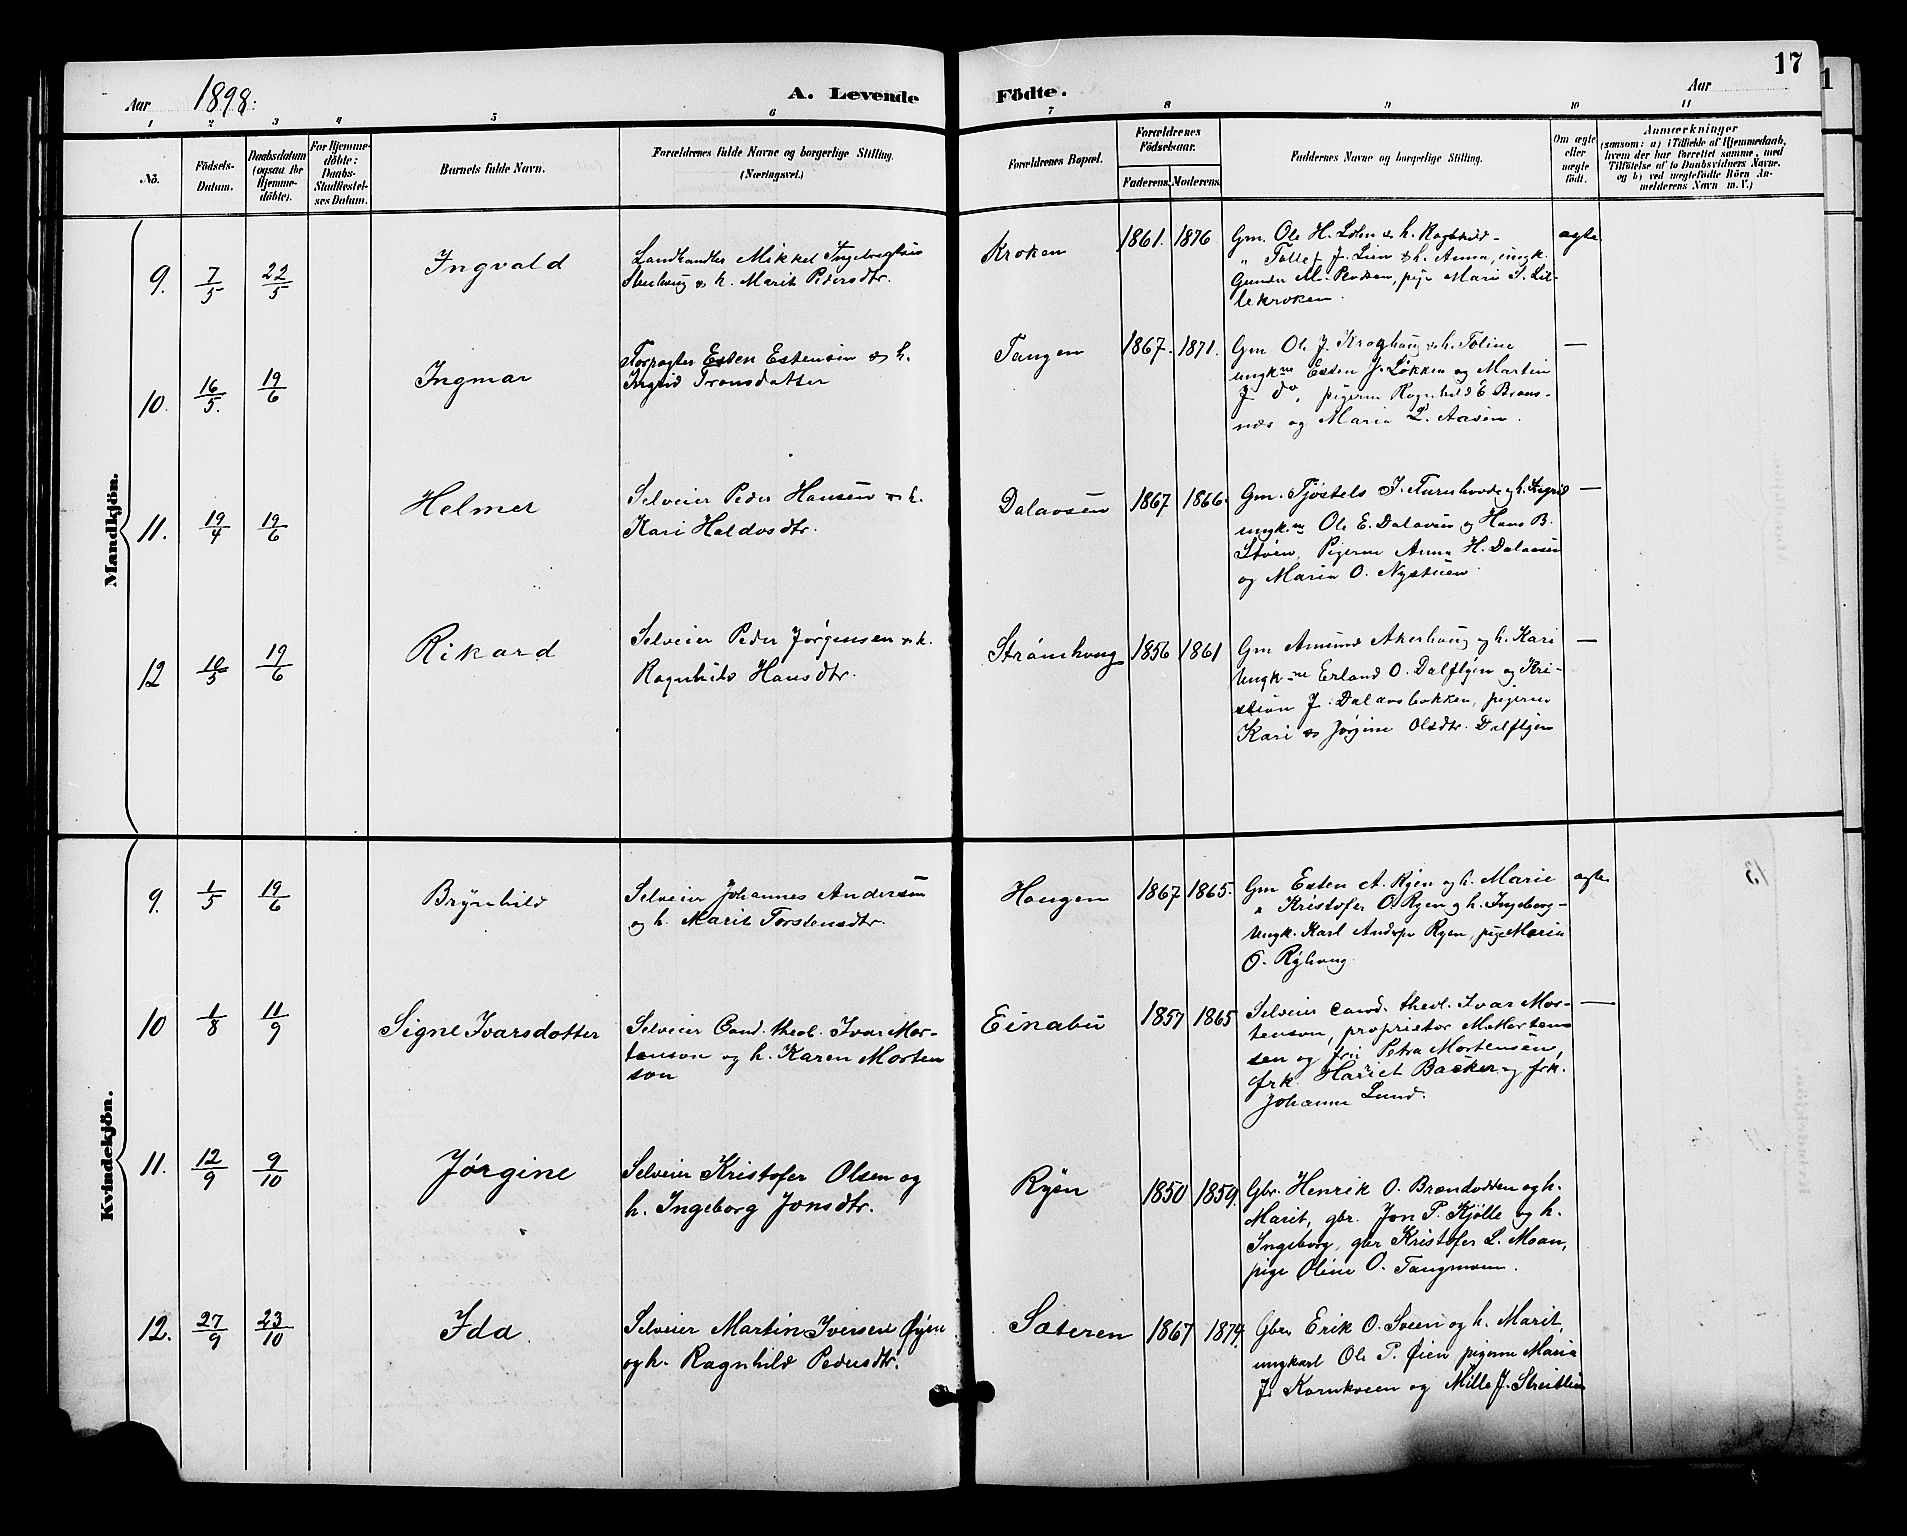 17
Aar 1898. A. Levende Födte. Aar
1 2 3 4 5 6 7 8 9 10 11
No.
Födsels-Datum.
Daabsdatum (ogsaa for Hjemme-döbte).
For Hjemme-döbte: Daabs-Stadfæstel-ses Datum.
Barnets fulde Navn.
Forældrenes fulde Navne og borgerlige Stilling. (Næringsvei.)
Forældrenes Bopæl.
Forældrenes Födselsaar.
Faderens. Moderens.
Faddernes Navne og borgerlige Stilling.
Om ægte eller uægte födt.
Anmærkninger
(saasom: a) i Tilfælde af Hjemmedaab,
hvem der har forrettet samme, med
Tilföielse af to Daabsvidners Navne.
og b) ved uægtefödte Börn An-
melderens Navn m. V.)
Mandkjön.
9. 7/5 22/5 Ingvald
Landhandler Mikkel
h. Marit Pedersdtr.
Kroken 1861. 1876
Gm. Ole H. h.
J. Lien & h. Anna, ungk.
Gunder M. pige Mari
lekroken.
ægte
10. 16/5. 19/6 Ingmar
Forpagter Esten Estensen & h.
Ingrid Tronsdatter
Tangen 1867. 1871.
Gm Ole J. Kroghaug & h. Toline
ungkne Esten J. Løkken og Martin
J. do, pigerne Ragnhild E
og Marie
—
11. 19/4 19/6 Helmer
Selveier Peder Hansen & h.
Kari Haldosdtr.
Dalaasen 1867 1866.
Gm. Tjøstels & h. Ingrid
ungkne Ole E. Dalaasen og Hans B.
Støen, Pigerne Anna H. Dalaasen
og Maria O. Nystuen
—
12 10/5 19/6 Rikard
Selveier Peder Jørgensen & h.
Ragnhild Hansdtr.
Strømhaug 1856 1861
Gm Amund Akerhaug og h. Kari
Ungkne Erland O. Dalflyen og Kri-
stian J. Dalaasbakken, pigerne
Kari & Jørgine Olsdtr. Dalflyen
—
Kvindekjön.
9. 1/5 19/6 Brynhild
Selveier Johannes Andersen
og h. Marit Torstensdtr.
Haugen 1867 1865.
Gm Esten A. Ryen og h. Marie
" Kristofer O. Ryen og h. Ingeborg
Ungk. Karl Ryen, pige Maria
O. Ryhaug
ægte
10 1/8 11/9 Signe Ivarsdotter
Selveier Cand. theol. Ivar Mor-
tenson og h. Karen Morten
son
Einabu 1857 1865
Selveier cand. theol. Ivar Mor-
tenson, proprietør M. Morten
sen og fru Petra Mortensen,
frk. Hariet Backer og frk.
Johanne Lund.
—
11. 12/9 9/10 Jørgine
Selveier Kristofer Olsen og
h. Ingeborg Jonsdtr.
Ryen 1850 1859.
Gbr. Henrik O. Brændodden og h.
Marit, gbr. Jon P. Kjølle og h.
Ingeborg, gbr Kristofer L. Moan,
pige Oline O. Tangmoen.
12. 27/9 23/10 Ida.
Selveier Martin Iversen Øyen
og h. Ragnhild Pedersdtr.
Sæteren 1867 1874.
Gbr Erik O. Sveen og h. Marit,
ungkarl Ole P. Øien pigerne Maria
J. Kornkveen og Mille J. Streitlien